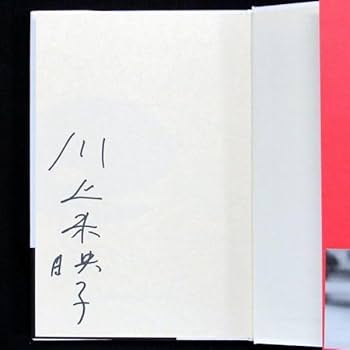 川上未映子